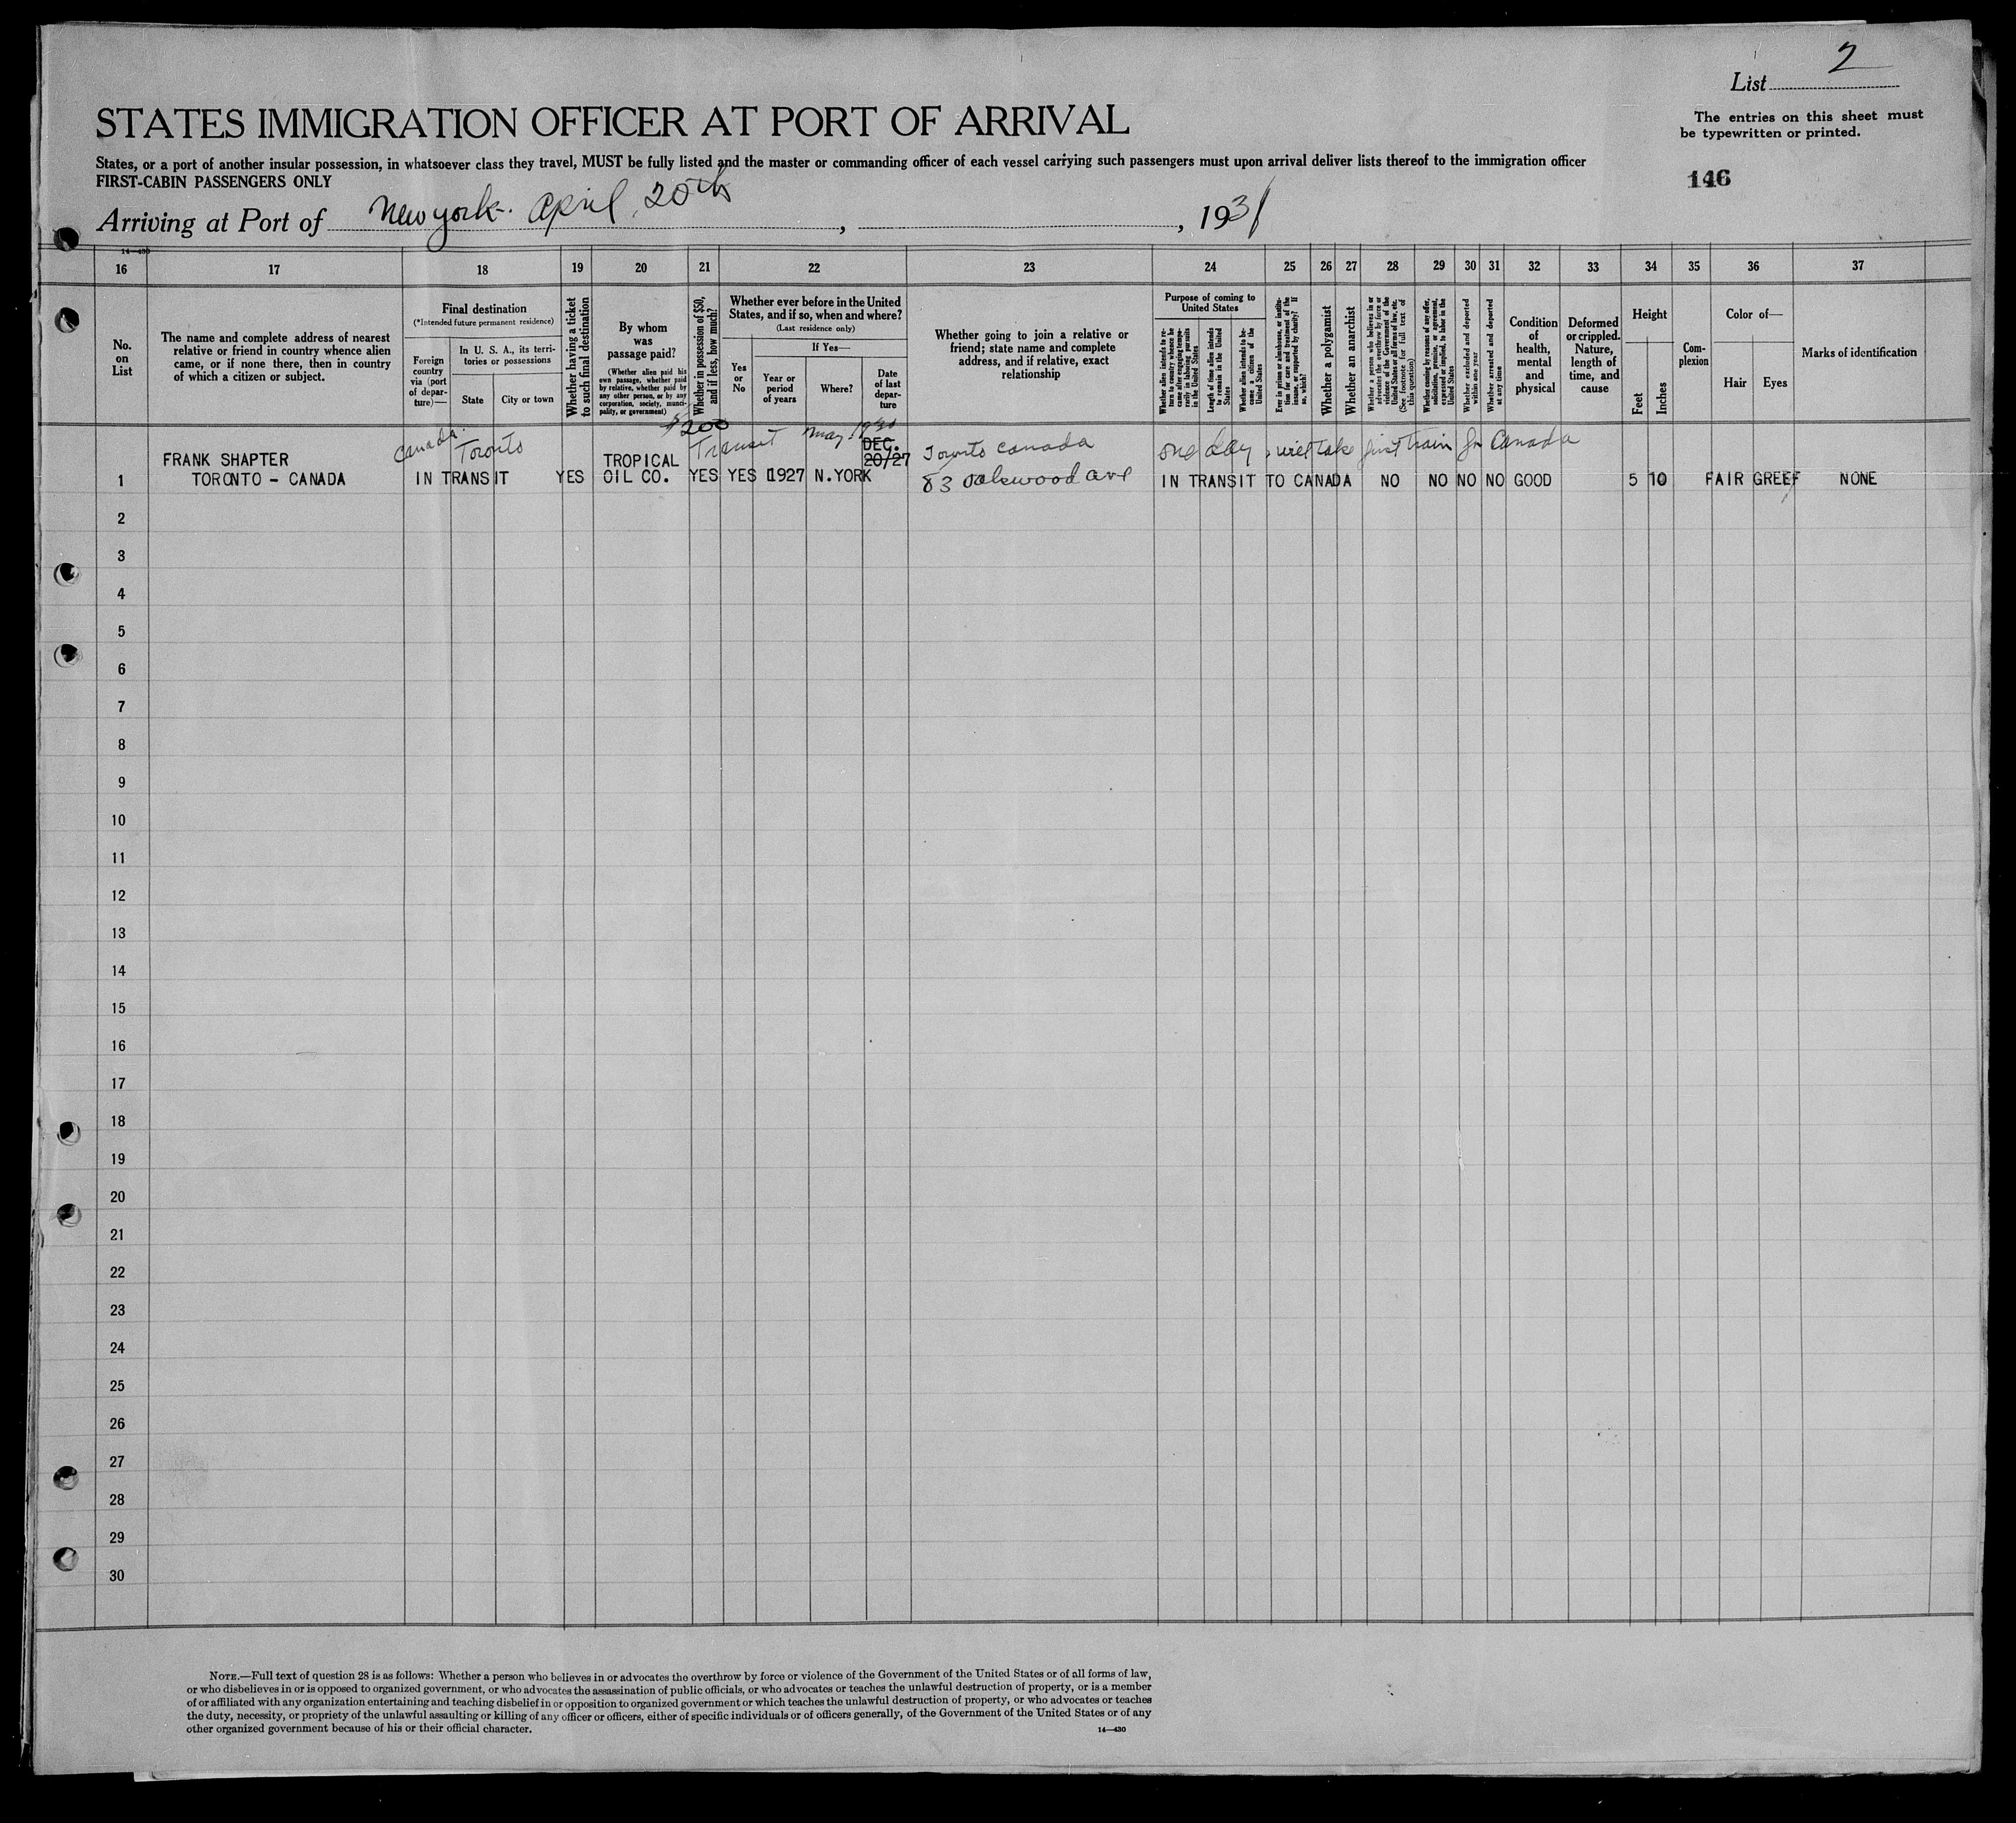 List 2
STATES IMMIGRATION OFFICER AT PORT OF ARRIVAL
The entries on this sheet must
be typewritten or printed.
States, or a port of another insular possession, in whatsoever class they travel, MUST be fully listed and the master or commanding officer of each vessel carrying such passengers must upon arrival deliver lists thereof to the immigration officer
FIRST-CABIN PASSENGERS ONLY
146
Arriving at Port of New york. April, 20th, , 1931
14-430
16 17 18 19 20 21 22 23 24 25 26 27 28 29 30 31 32 33 34 35 36 37
No.
on
List
The name and complete address of nearest
relative or friend in country whence alien
came, or if none there, then in country
of which a citizen or subject.
Final destination
(*Intended future permanent residence)
Foreign
country
via (port
of depar-
ture)—
In U. S. A., its terri-
tories or possessions
State
City or town
Whether having a ticket
to such final destination
By whom
was
passage paid?
(Whether alien paid his
own passage, whether paid
by relative, whether paid by
any other person, or by any
corporation, society, munici-
pality, or government)
Whether in possession of $50,
and if less, how much?
Whether ever before in the United
States, and if so, when and where?
(Last residence only)
Yes
or
No
If Yes—
Year or
period
of years
Where?
Date
of last
depar-
ture
Whether going to join a relative or
friend; state name and complete
address, and if relative, exact
relationship
Purpose of coming to
United States
Whether alien intends to re-
turn to country whence he
came after engaging tempo-
rarily in laboring pursuits
in the United States
Length of time alien intends
to remain in the United
States
Whether alien intends to be-
come a citizen of the
United States
Ever in prison or almshouse, or institu-
tion for care and treatment of the
insane, or supported by charity? If
so, which?
Whether a polygamist
Whether an anarchist
Whether a person who believes in or
advocates the overthrow by force or
violence of the Government of the
United States or all forms of law, etc.
(See footnote for full text of
this question)
Whether coming by reasons of any offer,
solicitation, promise, or agreement,
expressed or implied, to labor in the
United States
Whether excluded and deported
within one year
Whether arrested and deported
at any time
Condition
of
health,
mental
and
physical
Deformed
or crippled.
Nature,
length of
time, and
cause
Height
Feet
Inches
Com-
plexion
Color of—
Hair
Eyes
Marks of identification
Canada. Toronto $200 Transit May 1930 Toronto Canada one day will take first train for Canada
DEC.
FRANK SHAPTER TROPICAL 20/27
1 TORONTO - CANADA IN TRANSIT YES OIL CO. YES YES 1927 N.YORK 83 Oakwood ave IN TRANSIT TO CANADA NO NO NO NO GOOD 5 10 FAIR GREEF NONE
2
3
4
5
6
7
8
9
10
11
12
13
14
15
16
17
18
19
20
21
22
23
24
25
26
27
28
29
30
NOTE.—Full text of question 28 is as follows: Whether a person who believes in or advocates the overthrow by force or violence of the Government of the United States or of all forms of law,
or who disbelieves in or is opposed to organized government, or who advocates the assassination of public officials, or who advocates or teaches the unlawful destruction of property, or is a member
of or affiliated with any organization entertaining and teaching disbelief in or opposition to organized government or which teaches the unlawful destruction of property, or who advocates or teaches
the duty, necessity, or propriety of the unlawful assaulting or killing of any officer or officers, either of specific individuals or of officers generally, of the Government of the United States or of any
other organized government because of his or their official character.
14-430